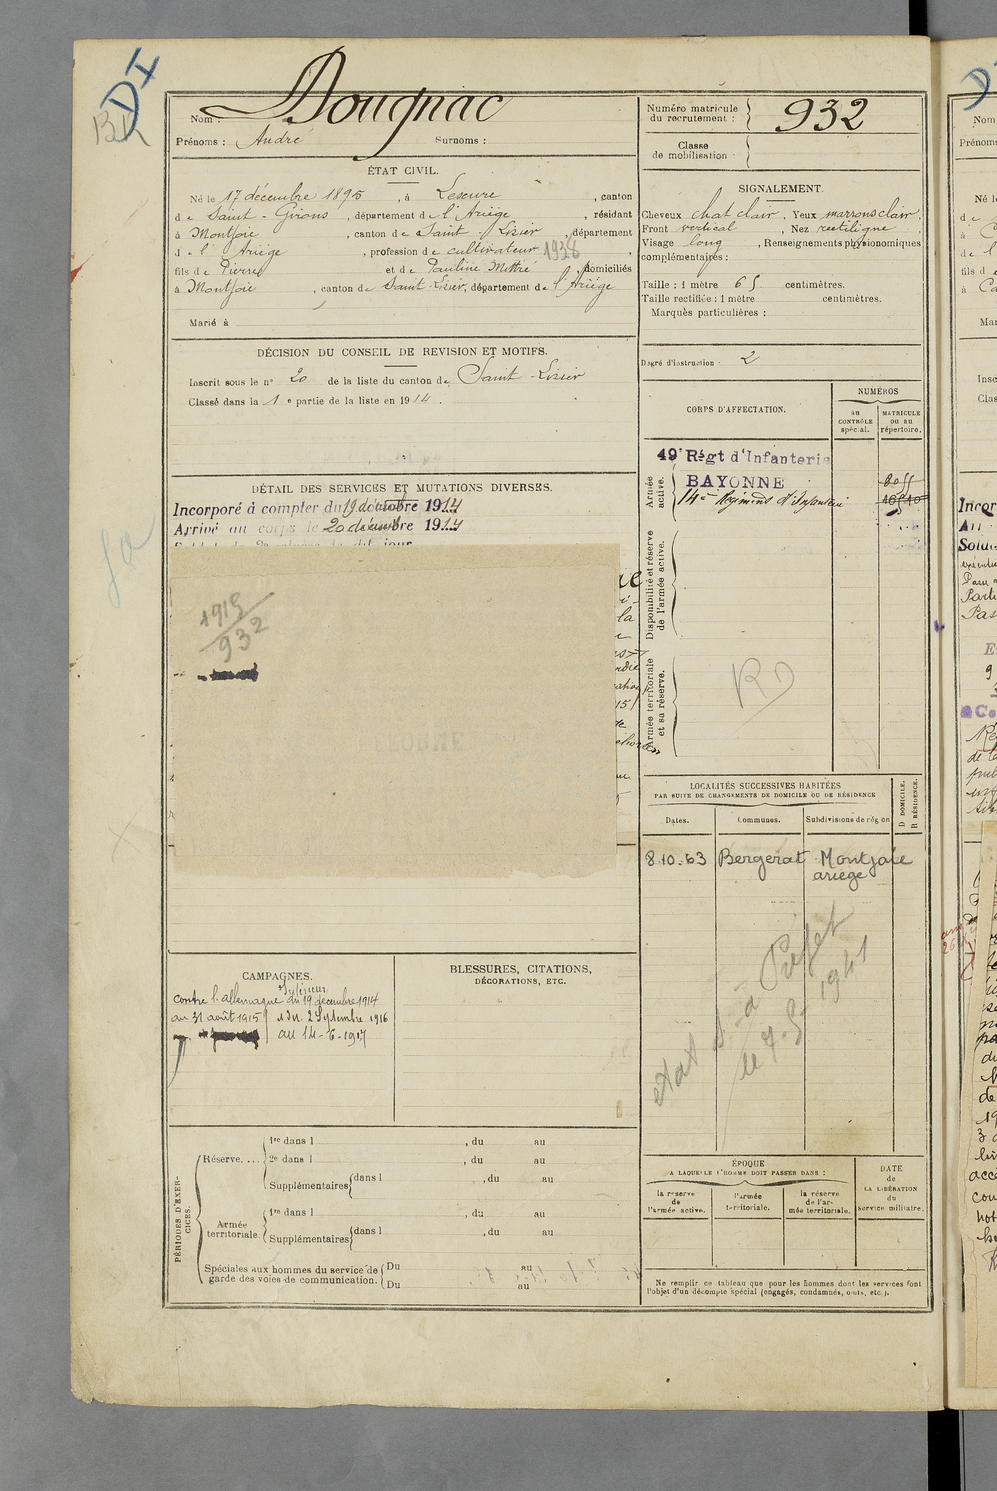 DI
BR
Nom : Dougnac
Prénoms : André Surnoms :
ÉTAT CIVIL.
Né le 17 décembre 1895, à Lescure, canton
de Saint-Girons, département de l'Ariège, résidant
à Montjoie, canton de Saint-Lizier, département
de l'Ariège, profession de cultivateur 1938,
fils de Pierre et de Pauline Mittré, domiciliés
à Montjoie, canton de Saint-Lizier, département de l'Ariège
Marié à
DÉCISION DU CONSEIL DE REVISION ET MOTIFS.
Inscrit sous le n° 20 de la liste du canton de Saint-Lizier
Classé dans la 1e partie de la liste en 1914.
DÉTAIL DES SERVICES ET MUTATIONS DIVERSES.
Incorporé à compter du 19 décembre 1914
Arrivé au corps le 20 décembre 1914
1915
932
CAMPAGNES.
Intérieur
contre l'allemagne du 19 décembre 1914
au 31 août 1915 / et du 2 Septembre 1916
au 14-6-1917
BLESSURES, CITATIONS,
DÉCORATIONS, ETC.
PÉRIODES D'EXERCICES.
Réserve.... 1re dans l , du au
2e dans l , du au
Supplémentaires dans l , du au
Armée territoriale. 1re dans l , du au
Supplémentaires dans l , du au
Spéciales aux hommes du service de garde des voies de communication. Du au
Du au
Numéro matricule
du recrutement : 932
Classe
de mobilisation :
SIGNALEMENT.
Cheveux chat clair, Yeux marrons clair,
Front vertical, Nez rectiligne,
Visage long, Renseignements physionomiques
complémentaires :
Taille : 1 mètre 65 centimètres.
Taille rectifiée : 1 mètre centimètres.
Marques particulières :
Degré d'instruction : 2
CORPS D'AFFECTATION.
NUMÉROS
au CONTRÔLE spécial.
MATRICULE ou au répertoire.
Armée active.
49e Régt d'Infanterie
BAYONNE
14e Régiment d'Infanterie
Disponibilité et réserve de l'armée active.
Armée territoriale et sa réserve.
RD
LOCALITÉS SUCCESSIVES HABITÉES
PAR SUITE DE CHANGEMENTS DE DOMICILE OU DE RÉSIDENCE
Dates. Communes. Subdivisions de région D DOMICILE. R RÉSIDENCE.
8.10.63 Bergerat Montjoie
ariège
le 7-5-1941
ÉPOQUE
A LAQUELLE L'HOMME DOIT PASSER DANS :
la réserve de l'armée active.
l'armée territoriale.
la réserve de l'armée territoriale.
DATE de LA LIBÉRATION du service militaire.
Ne remplir ce tableau que pour les hommes dont les services font
l'objet d'un décompte spécial (engagés, condamnés, omis, etc.).